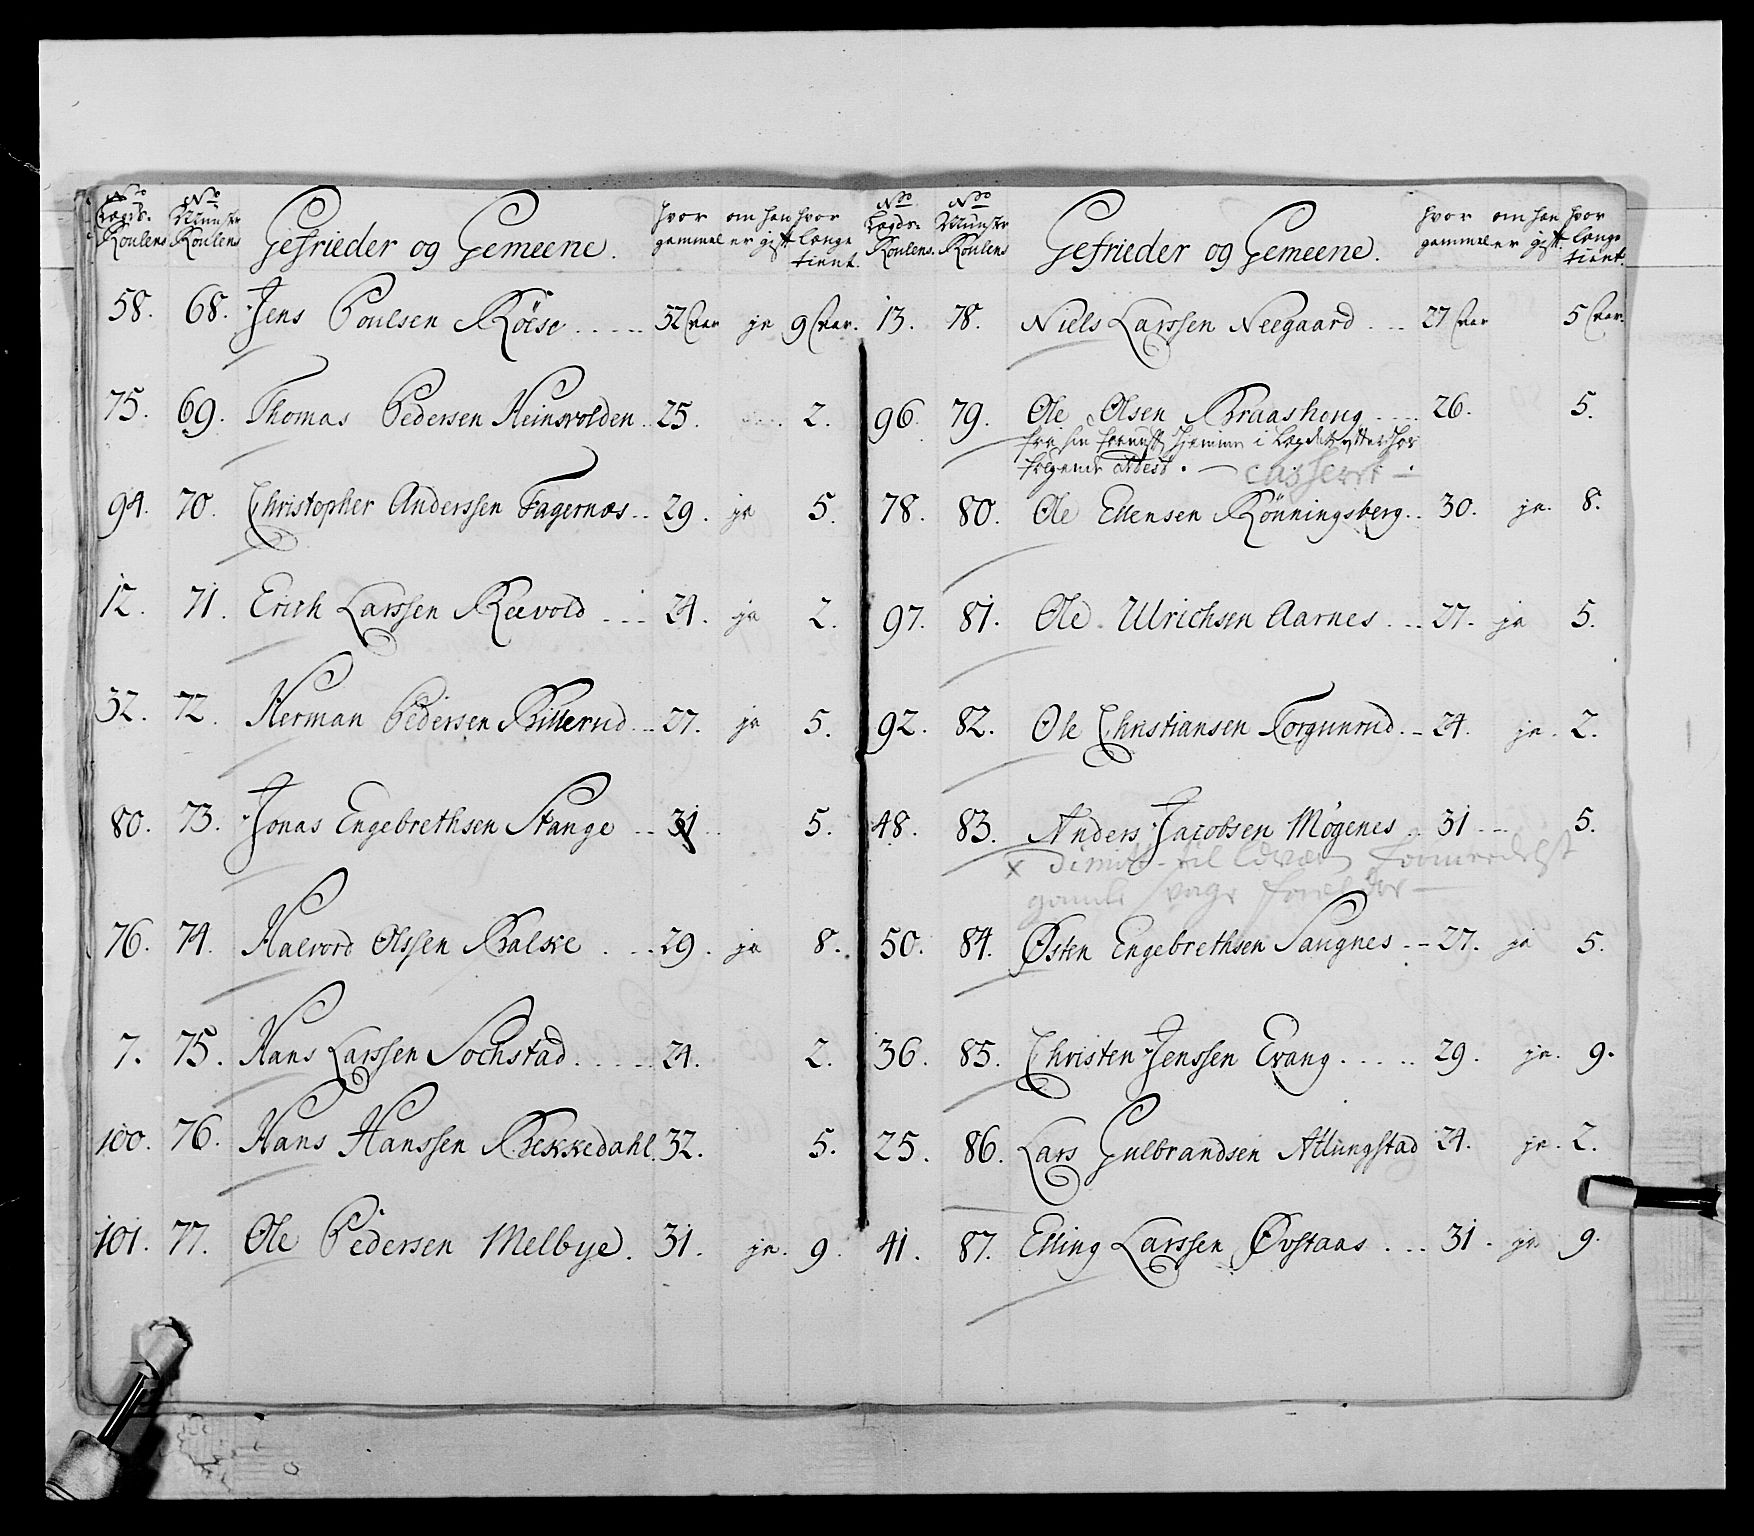 No Lægds- Roulens No Munster Roulens Gefrieder og Gemeene. hvor gammel om han er gift hvor længe tient.
58. 68. Jens Poulsen Röise ..... 32 Aar ja 9 Aar.
75. 69. Thomas Pedersen Heinsvolden .. 25. 2.
94. 70. Christopher Anderssen Fagernæs .. 29. ja 5.
12. 71. Erich Larssen Reevold .... 24. ja 2.
32. 72. Herman Pedersen Billerud ... 27. ja 5.
80. 73. Jonas Engebrethsen Stange .. 31 5.
76. 74. Halvord Olssen Balske . ... 29. ja 8.
7. 75. Hans Larssen Sochstad ..... 24. 2.
100. 76. Hans Hanssen Bekkedahl. 32. 5.
101. 77. Ole Pedersen Melbye. 31. ja. 9.
No Lægds- Roulens. No Munster Roulens Gefrieder og Gemeene. hvor gammel om han er gift. hvor længe tient.
13. 78. Niels Larssen Neegaard ... 27 Aar 5 Aar.
96. 79. Ole Olsen Braashoug .... 26. 5.
følgende Attest. - casseret -
78. 80. Ole Ellensen Rönningsberg .. 30. ja. 8.
97. 81. Ole Ulrichsen Aarnes ... 27. ja 5.
92. 82. Ole Christiansen Torgunrud. - 24. ja. 2.
48. 83. Anders Jacobsen Møgenes . 31 ... 5.
x dimitt. til
gamle svage forældre -
50. 84. Østen Engebrethsen Saugnes .. 27. ja 5.
36. 85. Christen Jenssen Evang ..... 29. ja. 9.
25. 86. Lars Gulbrandsen Atlungstad 24. ja. 2.
41. 87. Elling Larssen Øvstaas ... 31. ja 9.